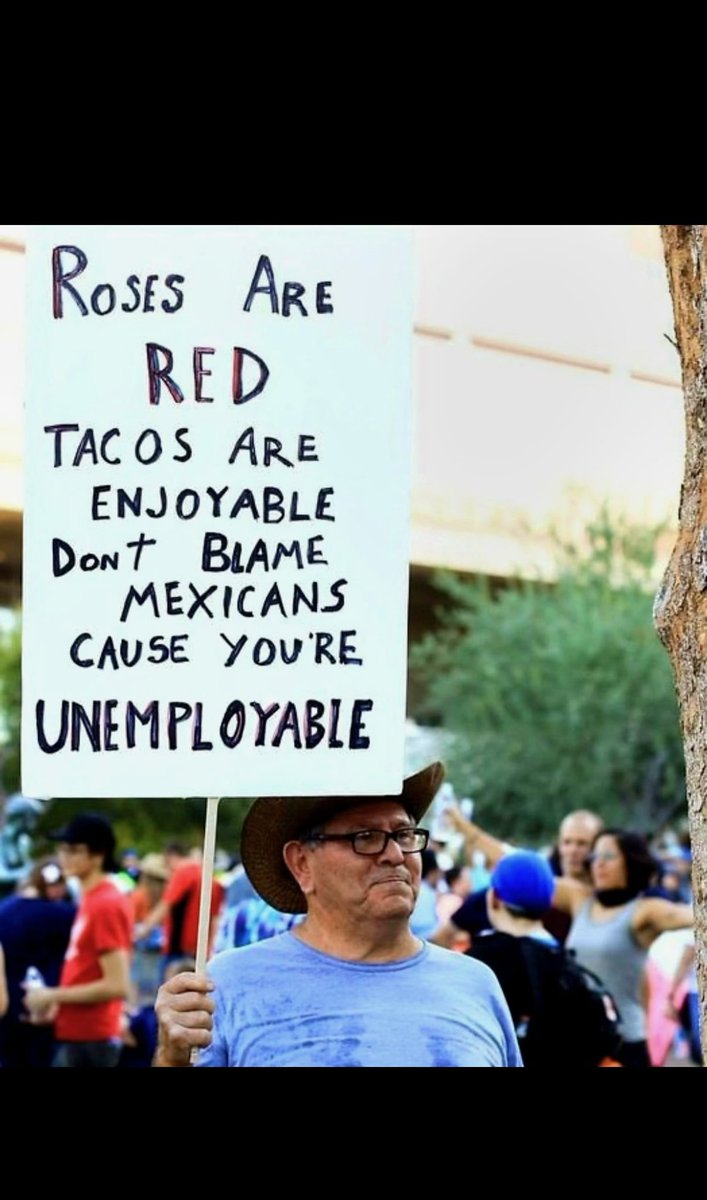 ROSES ARE
RED
TACOS ARE
ENJOYABLE
DONT BLAME
MEXICANS
CAUSE YOU'RE
UNEMPLOYABLE